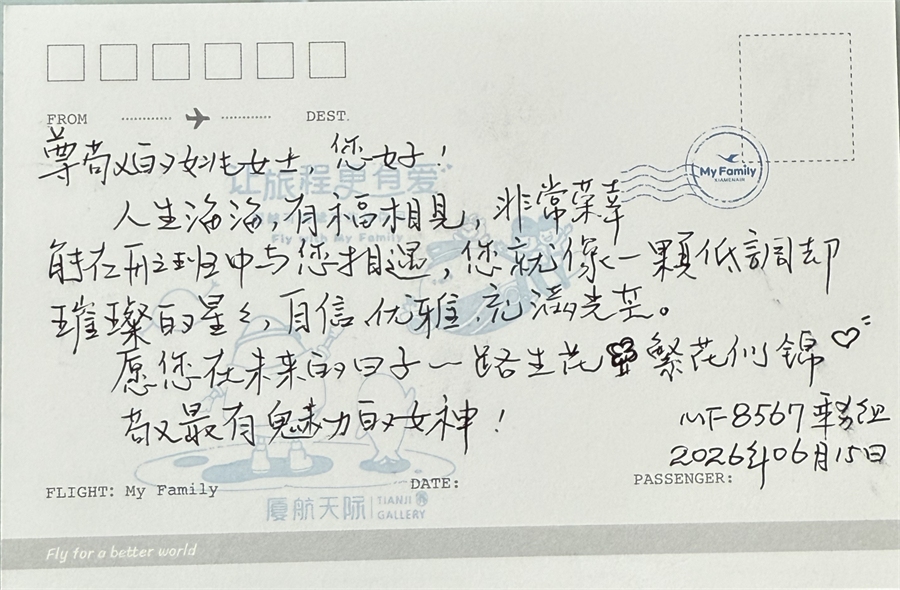 FROM DEST.
My Family
XIAMENAIR
尊敬的姚女士,您好!
让旅程更有爱
Fly with My Family
人生海海,有福相見,非常荣幸
能在此班中与您相遇,您就像一顆低調却
璀璨的星星,自信、优雅、充滿光芒。
愿您在未来的日子一路生花 繁花似錦
敬最有魅力的女神!
MF8567 乘务组
2026年06月15日
FLIGHT: My Family DATE: PASSENGER:
厦航天际 TIANJI GALLERY
Fly for a better world